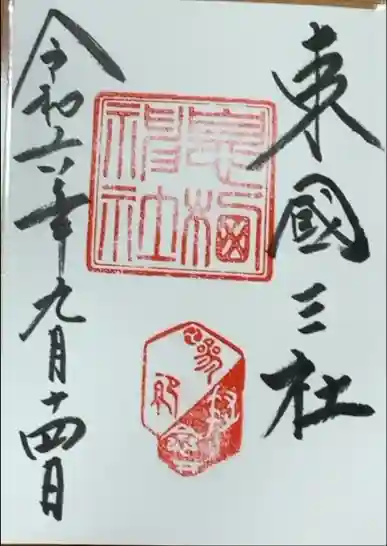 東國三社
息栖神社
令和六年九月十四日